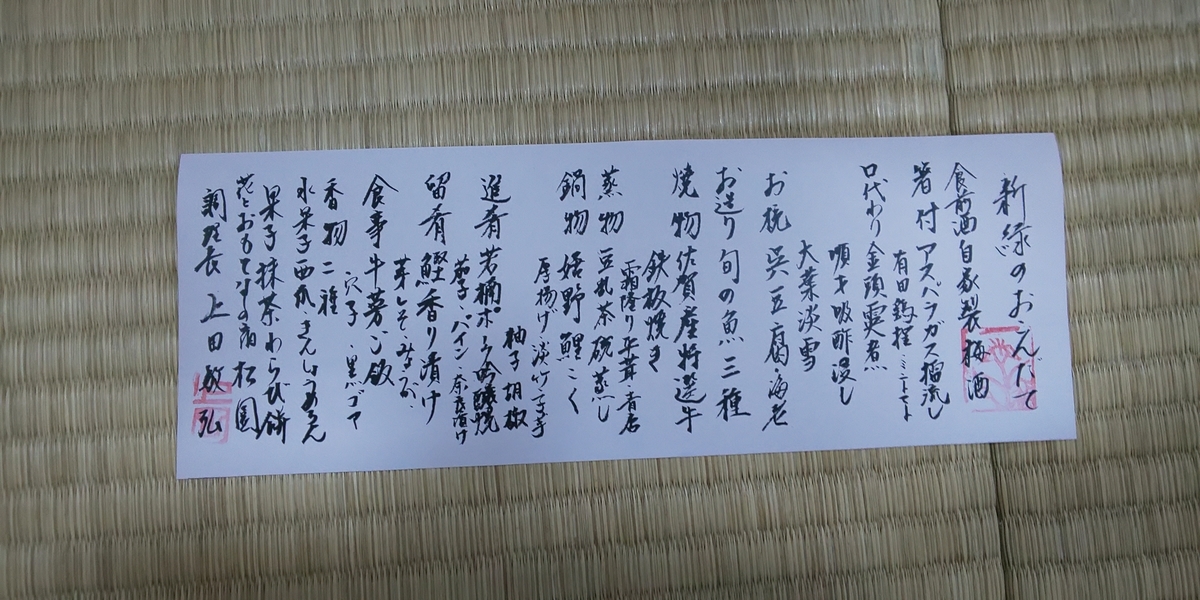 新緑のおこんだて
食前酒 自家製梅酒
箸付 アスパラガス擂流し
有田鶏 ミニトマト
口代わり 金頭煮
順才吸酢浸し
大葉淡雪
お椀 呉豆腐・海老
お造り 旬の魚三種
焼物 佐賀産特選牛
鉄板焼き
霜降り平茸・青唐
蒸物 豆乳茶碗蒸し
鍋物 嬉野鯉こく
厚揚げ・淡竹
柚子胡椒
進肴 若桶ポーク吟醸焼
茄子・パイン・奈良漬け
留肴 鰹香り漬け
芽しそ みょうが
食事 牛蒡ご飯
穴子・黒ゴマ
香物 二種
水菓子 西瓜・きんしょうめろん
果子 抹茶わらび餅
花とおもてなしの宿 松園
調理長 上田敏弘